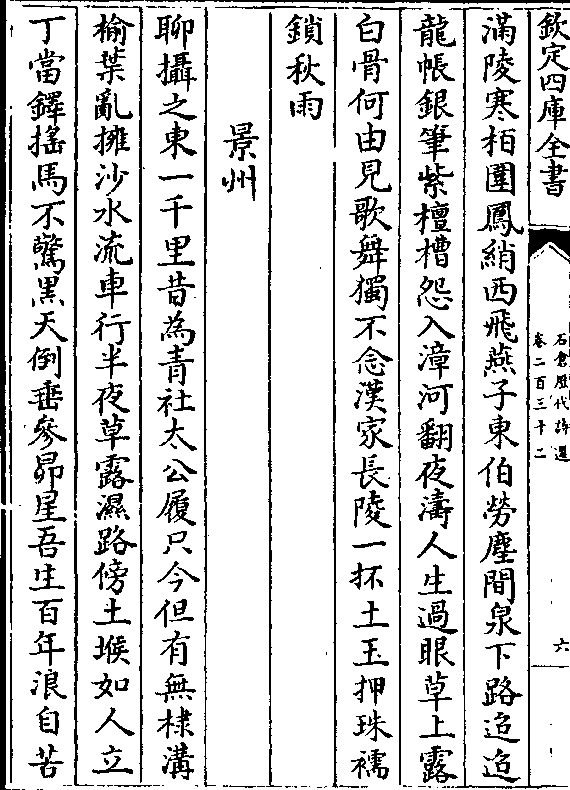 欽定四庫全書
石倉歷代詩選
卷二百三十二
六
滿陵寒栢圍鳳綃西飛燕子東伯勞塵間泉下路迢迢
龍帳銀筆紫檀槽怨入漳河翻夜濤人生過眼草上露
白骨何由見歌舞獨不念漢家長陵一抔土玉押珠襦
鎖秋雨
景州
聊攝之東一千里昔為青社太公履只今但有無棣溝
榆葉亂擁沙水流車行半夜草露濕路傍土堠如人立
丁當鐸揺馬不驚黒天倒垂參昴星吾生百年浪自苦